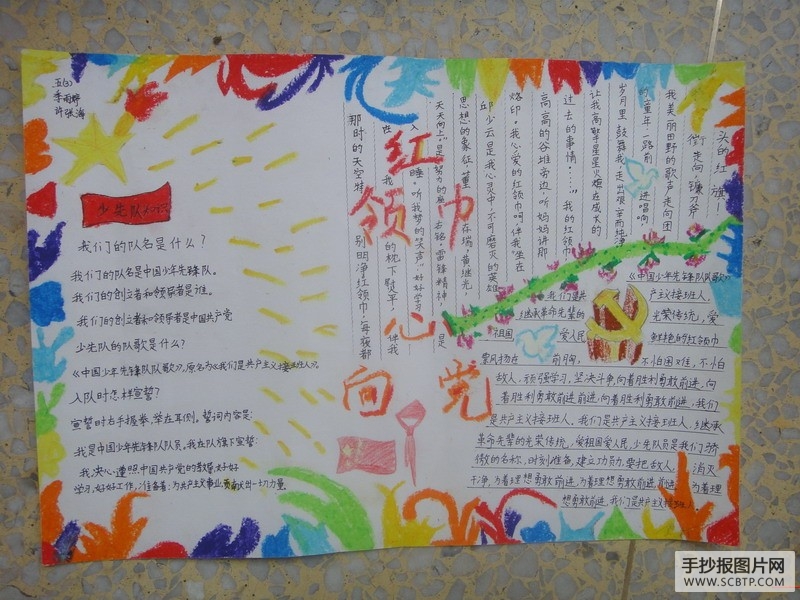 五(3)
李雨婷
许张海
少先队知识
我们的队名是什么?
我们的队名是中国少年先锋队。
我们的创立者和领导者是谁。
我们的创立者和领导者是中国共产党
少先队的队歌是什么?
《中国少年先锋队队歌》,原名为《我们是共产主义接班人》。
入队时怎样宣誓?
宣誓时右手握拳,举在耳侧。誓词内容是:
我是中国少年先锋队队员,我在队旗下宣誓:
我决心遵照中国共产党的教导,好好
学习,好好工作,准备着:为共产主义事业,贡献出一切力量
红领巾
心向党
头的红旗!
街走向,镰刀斧
我美丽田野的歌声走向团
的童年一路前进唱响。
岁月里鼓舞我走出艰辛而纯净
让我高擎手星星火炬在成长的
过去的事情,……”我的红领巾
高高的谷堆旁边,听妈妈讲那
烙印。我心爱的红领巾呵,伴我“坐在
邱少云是我心灵中不可磨灭的英雄
思想的象征,董存瑞,黄继光,
天天向上”是努力的座右铭,雷锋精神,是
睡。听我梦的笑声“好好学习
的枕下熨平,伴我
别明净红领巾,每夜都
那时的天空特
《中国少年先锋队队歌》
我们是共产主义接班人,
继承革命先辈的光荣传统,爱
祖国爱人民鲜艳的红领巾
飘扬在前胸,不怕困难,不怕
敌人,顽强学习,坚决斗争向着胜利勇敢前进,向
着胜利勇敢前进前进,向着胜利勇敢前进,我们
是共产主义接班人。我们是共产主义接班人,继承
革命先辈的光荣传统,爱祖国爱人民,少先队员是我们骄
傲的名称,时刻准备,建立功勋,要把敌人,消灭
干净,为着理想勇敢前进,为着理想勇敢前进前进,为着理
想勇敢前进,我们是共产主义接班人。
手抄报图片网
WWW.SCBTP.COM